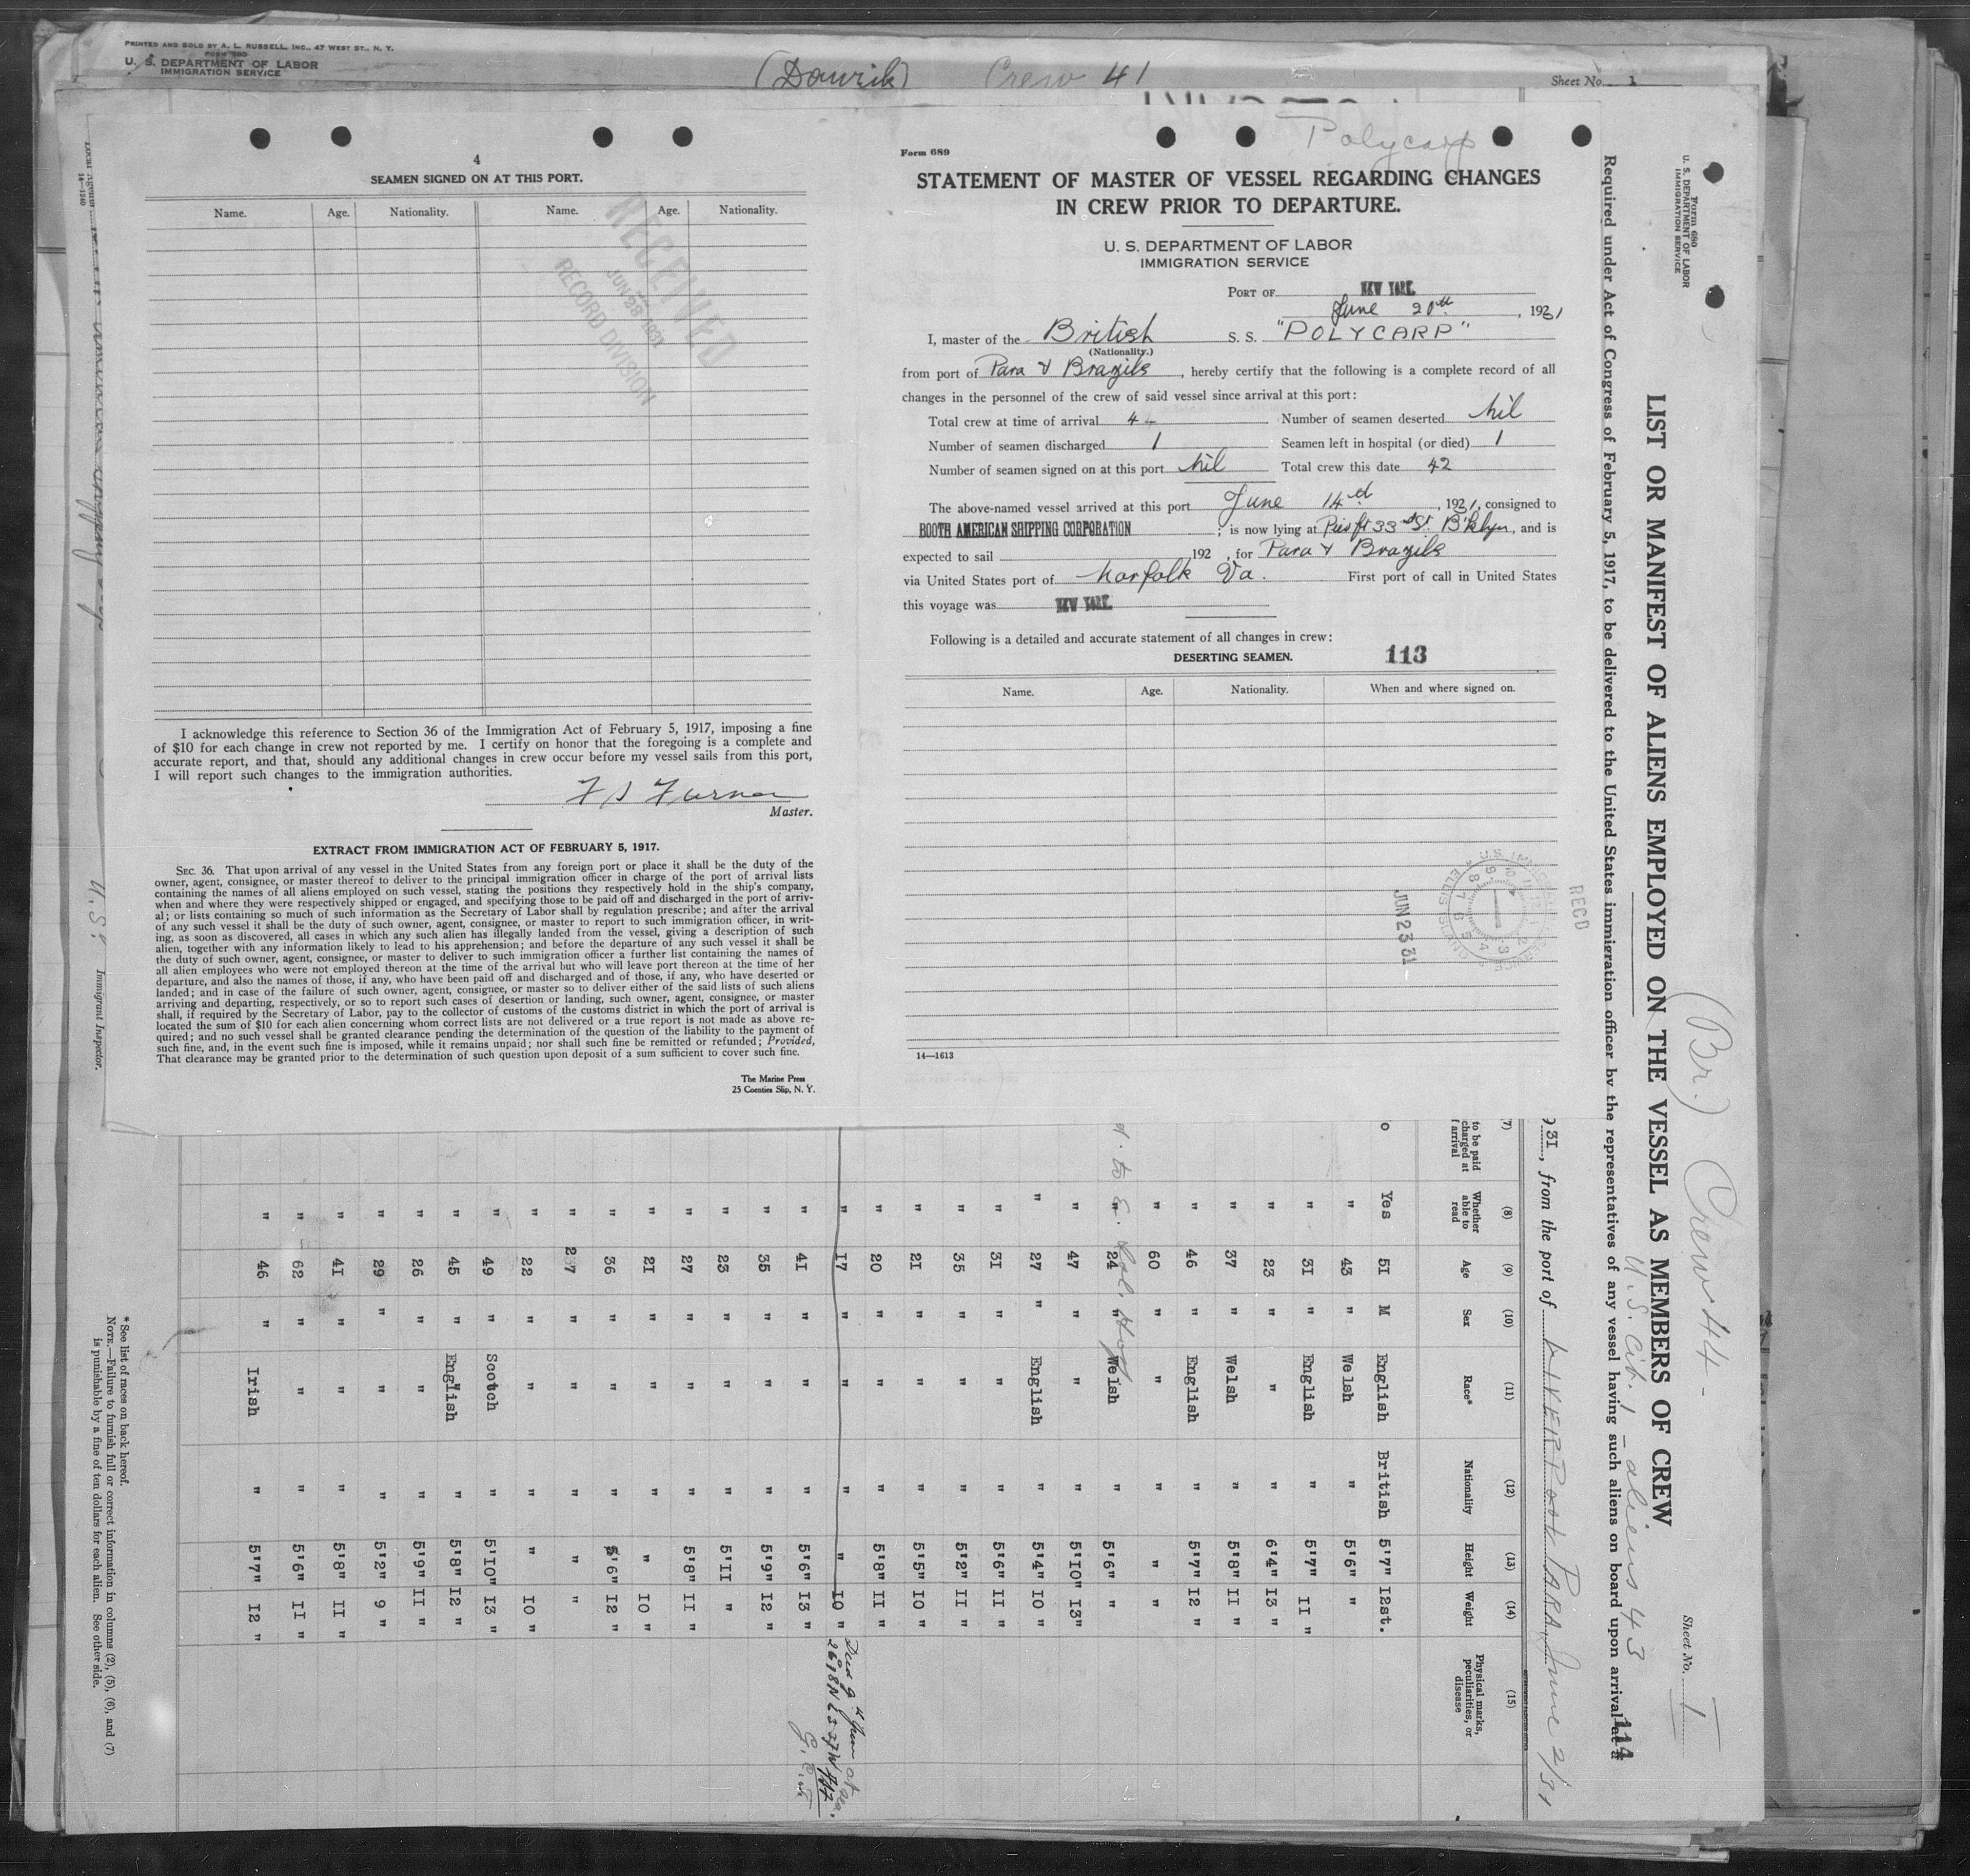 PRINTED AND SOLD BY A. L. RUSSELL, INC., 47 WEST ST., N. Y.
FORM 680
U. S. DEPARTMENT OF LABOR
IMMIGRATION SERVICE
Crew 41
Sheet No. 1
4
SEAMEN SIGNED ON AT THIS PORT.
Name. Age. Nationality. Name. Age. Nationality.
RECEIVED
JUN 23 1931
RECORD DIVISION
I acknowledge this reference to Section 36 of the Immigration Act of February 5, 1917, imposing a fine
of $10 for each change in crew not reported by me. I certify on honor that the foregoing is a complete and
accurate report, and that, should any additional changes in crew occur before my vessel sails from this port,
I will report such changes to the immigration authorities.
Master.
EXTRACT FROM IMMIGRATION ACT OF FEBRUARY 5, 1917.
SEC. 36. That upon arrival of any vessel in the United States from any foreign port or place it shall be the duty of the
owner, agent, consignee, or master thereof to deliver to the principal immigration officer in charge of the port of arrival lists
containing the names of all aliens employed on such vessel, stating the positions they respectively hold in the ship's company,
when and where they were respectively shipped or engaged, and specifying those to be paid off and discharged in the port of arriv-
al; or lists containing so much of such information as the Secretary of Labor shall by regulation prescribe; and after the arrival
of any such vessel it shall be the duty of such owner, agent, consignee, or master to report to such immigration officer, in writ-
ing, as soon as discovered, all cases in which any such alien has illegally landed from the vessel, giving a description of such
alien, together with any information likely to lead to his apprehension; and before the departure of any such vessel it shall be
the duty of such owner, agent, consignee, or master to deliver to such immigration officer a further list containing the names of
all alien employees who were not employed thereon at the time of the arrival but who will leave port thereon at the time of her
departure, and also the names of those, if any, who have been paid off and discharged and of those, if any, who have deserted or
landed; and in case of the failure of such owner, agent, consignee, or master so to deliver either of the said lists of such aliens
arriving and departing, respectively, or so to report such cases of desertion or landing, such owner, agent, consignee, or master
shall, if required by the Secretary of Labor, pay to the collector of customs of the customs district in which the port of arrival is
located the sum of $10 for each alien concerning whom correct lists are not delivered or a true report is not made as above re-
quired; and no such vessel shall be granted clearance pending the determination of the question of the liability to the payment of
such fine, and, in the event such fine is imposed, while it remains unpaid; nor shall such fine be remitted or refunded; Provided,
That clearance may be granted prior to the determination of such question upon deposit of a sum sufficient to cover such fine.
The Marine Press
25 Coenties Slip, N. Y.
Polycarp
Form 689
STATEMENT OF MASTER OF VESSEL REGARDING CHANGES
IN CREW PRIOR TO DEPARTURE.
U. S. DEPARTMENT OF LABOR
IMMIGRATION SERVICE
PORT OF NEW YORK
June 20th, 1931
I, master of the British S. S. "POLYCARP"
(Nationality.)
from port of Para & Brazils, hereby certify that the following is a complete record of all
changes in the personnel of the crew of said vessel since arrival at this port:
Total crew at time of arrival 4 Number of seamen deserted Nil
Number of seamen discharged 1 Seamen left in hospital (or died) 1
Number of seamen signed on at this port Nil Total crew this date 42
The above-named vessel arrived at this port June 14th, 1931, consigned to
BOOTH AMERICAN SHIPPING CORPORATION; is now lying at Pier ft 33rd St. B'klyn, and is
expected to sail 192 , for Para & Brazils
via United States port of Norfolk Va. First port of call in United States
this voyage was NEW YORK
Following is a detailed and accurate statement of all changes in crew:
DESERTING SEAMEN. 113
Name. Age. Nationality. When and where signed on.
REC'D
JUN 23 31
14—1613
Form 680
U. S. DEPARTMENT OF LABOR
IMMIGRATION SERVICE
(Br.) Crew 44 -
Sheet No. 1
LIST OR MANIFEST OF ALIENS EMPLOYED ON THE VESSEL AS MEMBERS OF CREW
U.S. Cit. 1 - aliens 43
Required under Act of Congress of February 5, 1917, to be delivered to the United States immigration officer by the representatives of any vessel having such aliens on board upon arrival at a
114
31, from the port of LIVERPOOL PARA June 2/31
(7) (8) (9) (10) (11) (12) (13) (14) (15)
to be paid charged at arrival Whether able to read Age Sex Race* Nationality Height Weight Physical marks, peculiarities, or disease
o Yes 51 M English British 5'7" 12st.
" 43 " Welsh " 5'6" "
" 31 " English " 5'7" 11 "
" 23 " " " 6'4" 13 "
" 37 " Welsh " 5'8" 11 "
" 46 " English " 5'7" 12 "
" 60 " " " " "
" 24 " Welsh " 5'6" "
" 47 " " " 5'10" 13"
" 27 " English " 5'4" 10 "
" 31 " " " 5'6" 11 "
" 35 " " " 5'2" 11 "
" 21 " " " 5'5" 10 "
" 20 " " " 5'8" 11 "
" 17 " " " " 10 " Died 9th June at sea.
" 41 " " " 5'6" 13 "
" 35 " " " 5'9" 12 "
" 23 " " " 5'11 "
" 27 " " " 5'8" 11 "
" 21 " " " " 10 "
" 36 " " " 5'6" 12 "
" 237 " " " " "
" 22 " " " " 10 "
" 49 " Scotch " 5'10" 13 "
" 45 " English " 5'8" 12 "
" 26 " " " 5'9" 11 "
" 29 " " " 5'2" 9 "
" 41 " " " 5'8" 11 "
" 62 " " " 5'6" 11 "
" 46 " Irish " 5'7" 12 "
* See list of races on back hereof.
NOTE.—Failure to furnish full or correct information in columns (2), (5), (6), and (7)
is punishable by a fine of ten dollars for each alien. See other side.
U. S. Immigrant Inspector.
14—1240